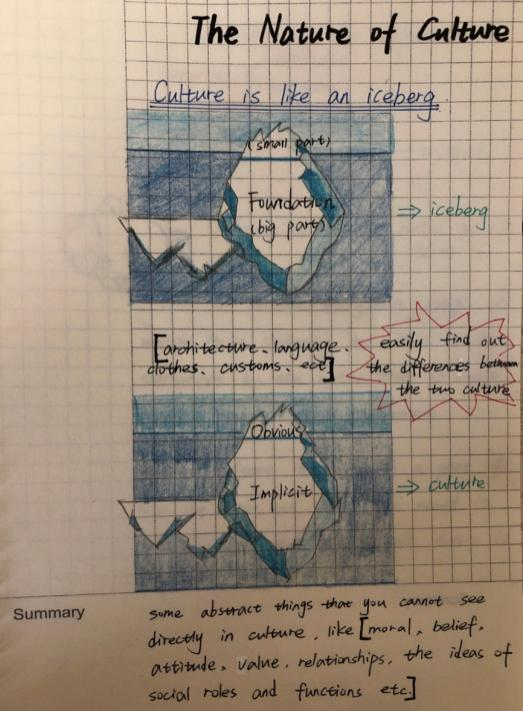 The Nature of Culture
Culture is like an iceberg.
(small part)
Foundation
(big part)
⇒ iceberg
[architecture、language、
clothes、customs、ect]
easily find out
the differences between
the two culture
Obvious
Implicit
⇒ culture
Summary
some abstract things that you cannot see
directly in culture, like [moral、belief、
attitude、value、relationships、the ideas of
social roles and functions etc.]